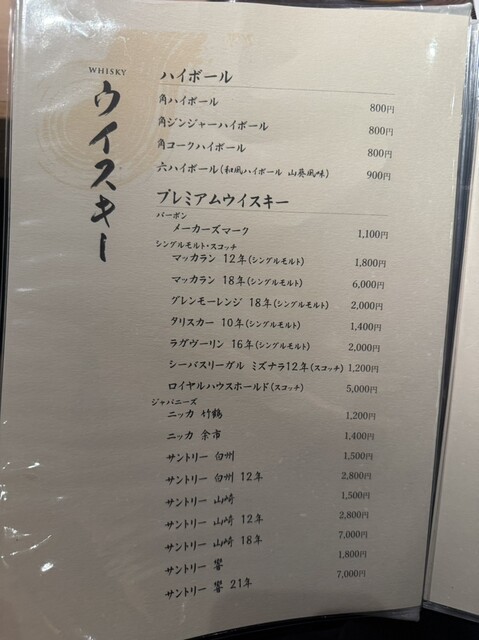 WHISKY
ウイスキー
ハイボール
角ハイボール 800円
角ジンジャーハイボール 800円
角コークハイボール 800円
六ハイボール(和風ハイボール 山葵風味) 900円
プレミアムウイスキー
バーボン
メーカーズマーク 1,100円
シングルモルト・スコッチ
マッカラン 12年(シングルモルト) 1,800円
マッカラン 18年(シングルモルト) 6,000円
グレンモーレンジ 18年(シングルモルト) 2,000円
タリスカー 10年(シングルモルト) 1,400円
ラグヴーリン 16年(シングルモルト) 2,000円
シーバスリーガル ミズナラ12年(スコッチ) 1,200円
ロイヤルハウスホールド(スコッチ) 5,000円
ジャパニーズ
ニッカ 竹鶴 1,200円
ニッカ 余市 1,400円
サントリー 白州 1,500円
サントリー 白州 12年 2,800円
サントリー 山崎 1,500円
サントリー 山崎 12年 2,800円
サントリー 山崎 18年 7,000円
サントリー 響 1,800円
サントリー 響 21年 7,000円